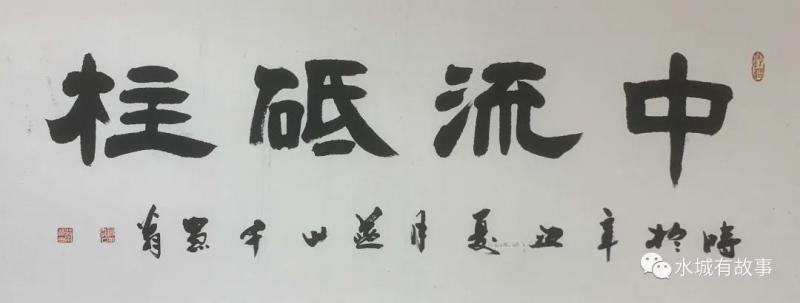 中流砥柱
時於辛丑夏月燕山千
水城有故事